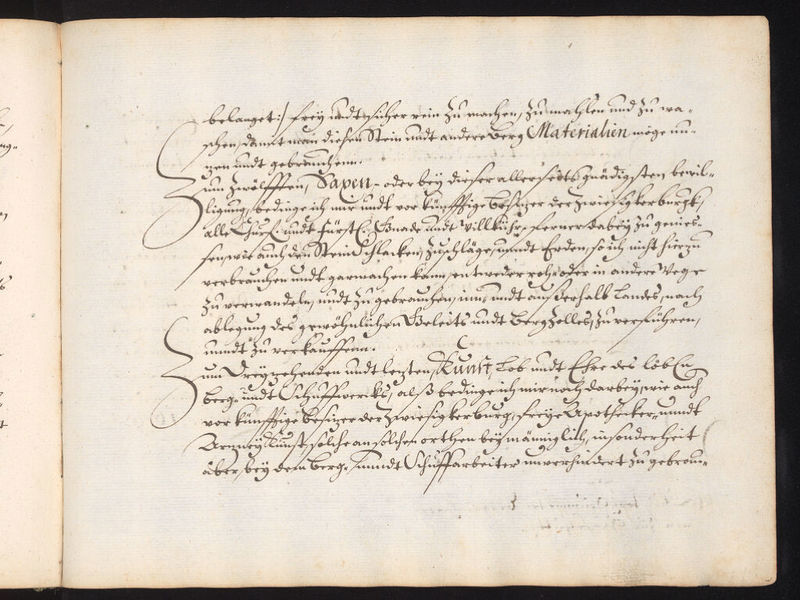 belanget:/ frey undt sicher rein zu machen, zu mahlen und zu wa-
schen, damit man diesen Stein undt andere Berg Materialien möge nu-
zen undt gebrauchenn.
Zum zwölfften, Saxen, oder bey dieser allerseits gnädigsten bewil-
ligung, bedinge ich mir undt vor künfftige besizer der Zwiesigkerburgk,
alle Churf: undt Fürstl: Gnade undt willkühr, ferner dabey zu genies-
sen, wie auch den Stein Schlacken, Zuschläge, unndt Erden, so ich nicht hierzu
verbrauchen undt garmachen kann, entweder rohe oder in andere Wege
zu verwandeln, undt zu gebrauchen, inn undt außerhalb Landes, nach
ablegung des gewöhnlichen Geleits undt Bergzolles, zu verführen,
unndt zu verkauffenn.
Zum Dreyzehenden undt lezten, Kunst Lob undt Ehre des löbl:
Berg- undt Schuffwercks, alß bedinge ich mir noch darbey, wie auch
vor künfftige besizer der Zwiesigkerburg, freye Apothecker- unndt
Arzney Kunst, solche an solchen orthen bey männiglich, insonderheit
aber, bey dem Berg- unndt Schuffarbeiter unverhindert zu gebrau-